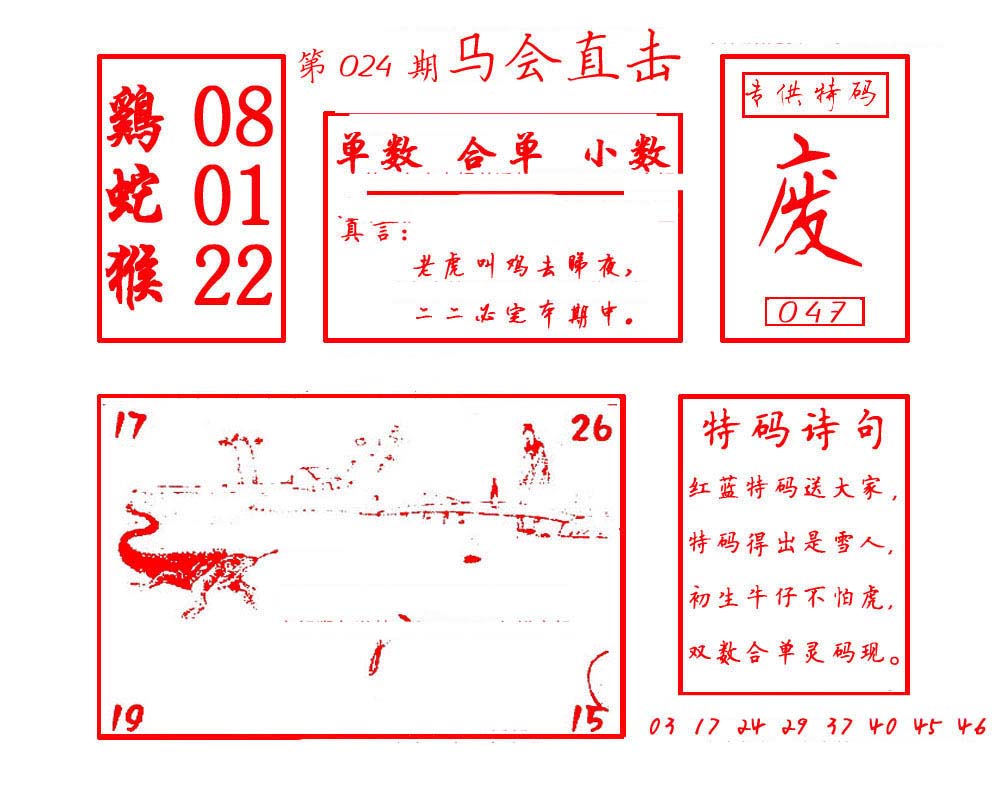 第 024 期 马会直击
鷄 08
蛇 01
猴 22
单数 合单 小数
真言：
老虎叫鸡去睇夜，
二二必定本期中。
专供特码
废
047
17 26
19 15
特码诗句
红蓝特码送大家，
特码得出是雪人，
初生牛仔不怕虎，
双数合单灵码现。
03 17 24 29 37 40 45 46